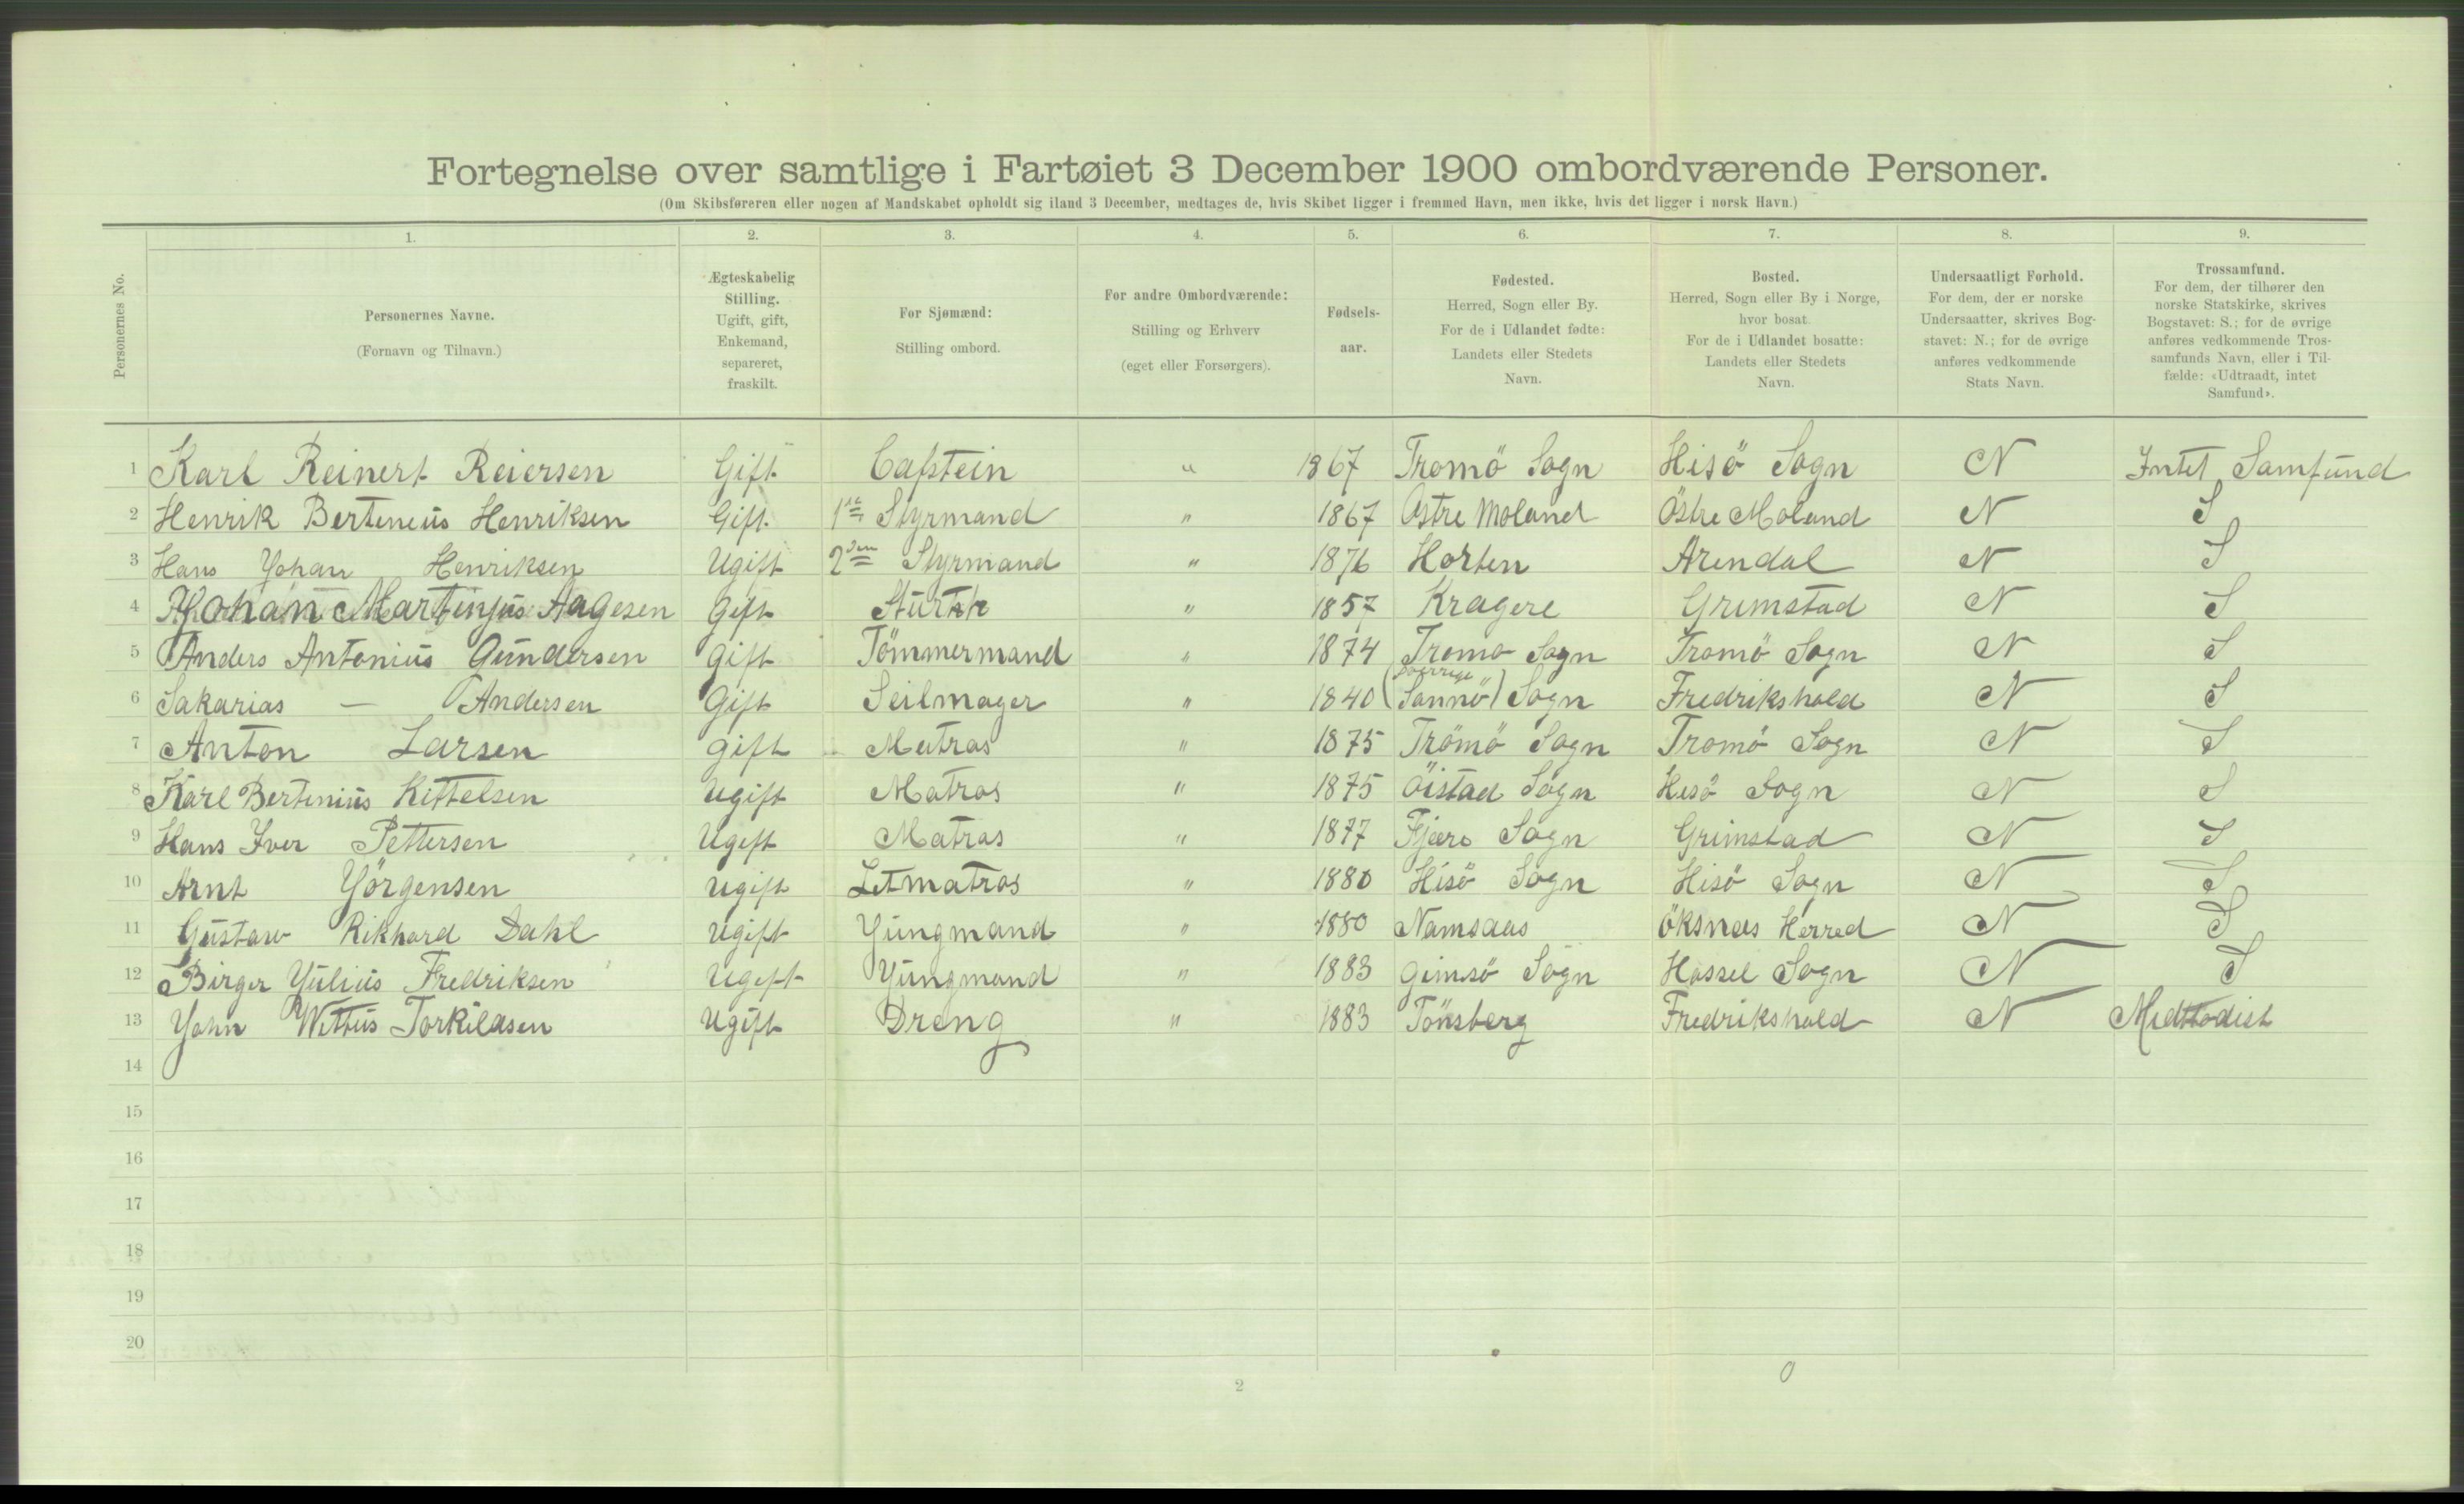 Fortegnelse over samtlige i Fartøiet 3 December 1900 ombordværende Personer.
(Om Skibsføreren eller nogen af Mandskabet opholdt sig iland 3 December, medtages de, hvis Skibet ligger i fremmed Havn, men ikke, hvis det ligger i norsk Havn.)
Personernes No.
1.
Personernes Navne.
(Fornavn og Tilnavn.)
2.
Ægteskabelig
Stilling.
Ugift, gift,
Enkemand,
separeret,
fraskilt.
3.
For Sjømænd:
Stilling ombord.
4.
For andre Ombordværende:
Stilling og Erhverv
(eget eller Forsørgers).
5.
Fødsels-
aar.
6.
Fødested.
Herred, Sogn eller By.
For de i Udlandet fødte:
Landets eller Stedets
Navn.
7.
Bosted.
Herred, Sogn eller By i Norge,
hvor bosat.
For de i Udlandet bosatte:
Landets eller Stedets
Navn.
8.
Undersaatligt Forhold.
For dem, der er norske
Undersaatter, skrives Bog-
stavet: N.; for de øvrige
anføres vedkommende
Stats Navn.
9.
Trossamfund.
For dem, der tilhører den
norske Statskirke, skrives
Bogstavet: S.; for de øvrige
anføres vedkommende Tros-
samfunds Navn, eller i Til-
fælde: «Udtraadt, intet
Samfund».
1 Karl Reinert Reiersen Gift Capstein " 1867 Tromö Sogn Hisö Sogn N Intet Samfund
2 Henrik Berteneus Henriksen Gift 1ste Styrmand " 1867 Østre Moland Östre Moland N S
3 Hans Johan Henriksen Ugift 2den Styrmand " 1876 Horten Arendal N S
4 Johan Martinjus Aagesen Gift " 1857 Kragere Grimstad N S
5 Anders Antonius Gundersen Gift Tömmermand " 1874 Tromo Sogn Tromö Sogn N S
6 Sakarias — Andersen Gift Seilmager " 1840 (Sannö) Sogn Fredrikshald N S
7 Anton Larsen gift Matros " 1875 Trömö Sogn Tromö Sogn N S
8 Karl Bertinius Kittelsen Ugift Matros " 1875 Öistad Sogn Hisö Sogn N S
9 Hans Iver Pettersen Ugift Matros " 1877 Fjære Sogn Grimstad N S
10 Arnt Jörgensen Ugift Letmatros " 1880 Hisö Sogn Hisö Sogn N S
11 Gustav Rikhard Dahl Ugift Jungmand " 1880 Namsaas Öksnæs Herred N S
12 Birger Julius Fredriksen Ugift Jungmand " 1883 Gimsö Sogn Hassel Sogn N S
13 John Wittus Torkildsen Ugift Dreng " 1883 Tönsberg Fredrikshald N Medttodist
14
15
16
17
18
19
20
2